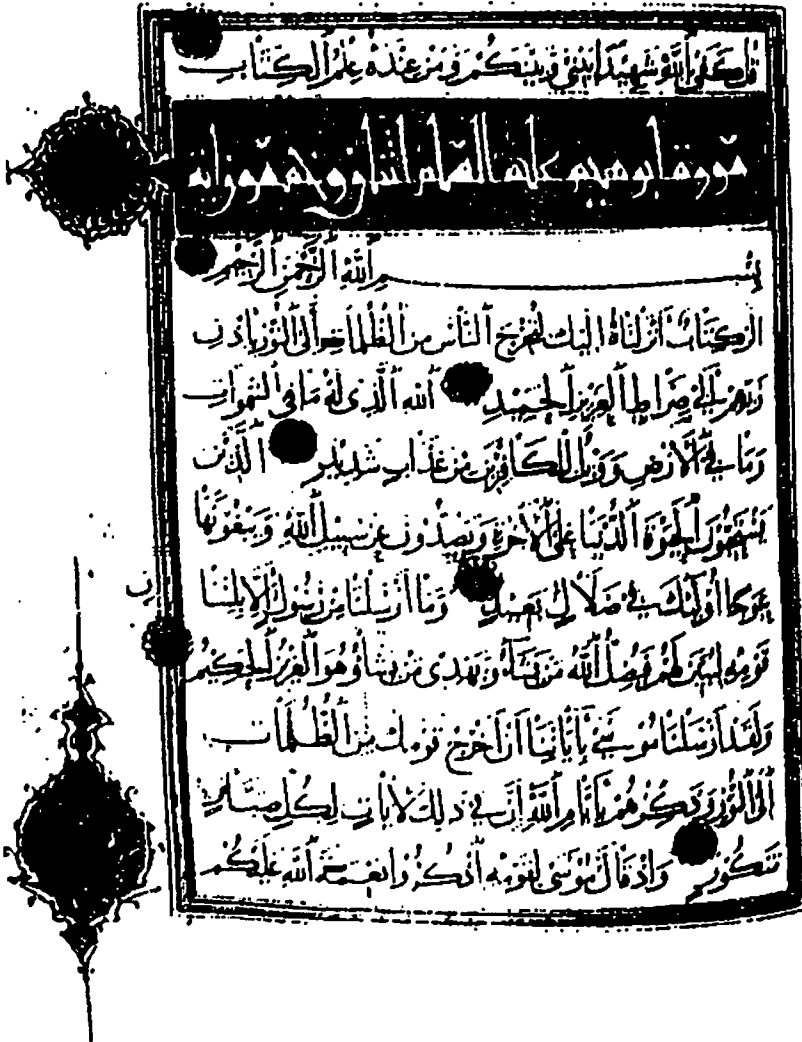 قُلْ كَفَىٰ بِاللَّهِ شَهِيدًا بَيْنِي وَبَيْنَكُمْ وَمَنْ عِنْدَهُ عِلْمُ الْكِتَابِ
سورة إبرهيم عليه السلام اثنان وخمسون آية
بِسْمِ اللَّهِ الرَّحْمَٰنِ الرَّحِيمِ
الر كِتَابٌ أَنْزَلْنَاهُ إِلَيْكَ لِتُخْرِجَ النَّاسَ مِنَ الظُّلُمَاتِ إِلَى النُّورِ بِإِذْنِ
رَبِّهِمْ إِلَىٰ صِرَاطِ الْعَزِيزِ الْحَمِيدِ اللَّهِ الَّذِي لَهُ مَا فِي السَّمَوَاتِ
وَمَا فِي الْأَرْضِ وَوَيْلٌ لِلْكَافِرِينَ مِنْ عَذَابٍ شَدِيدٍ الَّذِينَ
يَسْتَحِبُّونَ الْحَيَوٰةَ الدُّنْيَا عَلَى الْآخِرَةِ وَيَصُدُّونَ عَنْ سَبِيلِ اللَّهِ وَيَبْغُونَهَا
عِوَجًا أُولَٰئِكَ فِي ضَلَالٍ بَعِيدٍ وَمَا أَرْسَلْنَا مِنْ رَسُولٍ إِلَّا بِلِسَانِ
قَوْمِهِ لِيُبَيِّنَ لَهُمْ فَيُضِلُّ اللَّهُ مَنْ يَشَاءُ وَيَهْدِي مَنْ يَشَاءُ وَهُوَ الْعَزِيزُ الْحَكِيمُ
وَلَقَدْ أَرْسَلْنَا مُوسَىٰ بِآيَاتِنَا أَنْ أَخْرِجْ قَوْمَكَ مِنَ الظُّلُمَاتِ
إِلَى النُّورِ وَذَكِّرْهُمْ بِأَيَّامِ اللَّهِ إِنَّ فِي ذَلِكَ لَآيَاتٍ لِكُلِّ صَبَّارٍ
شَكُورٍ وَإِذْ قَالَ مُوسَىٰ لِقَوْمِهِ اذْكُرُوا نِعْمَةَ اللَّهِ عَلَيْكُمْ